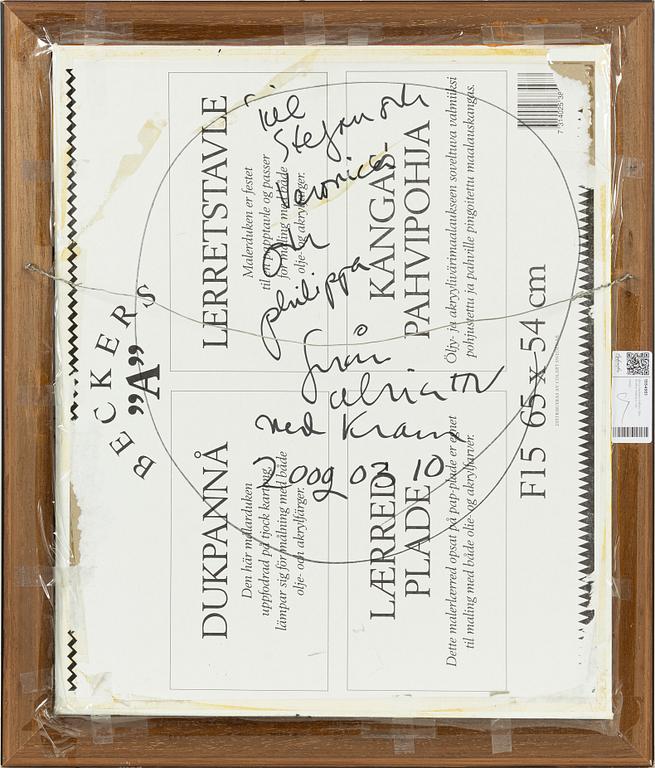 Till
Stefan och
Veronica
och
philippa
från
Ulrica HV
med Kram
2009 03 10
BECKERS
”A”
LERRETSTAVLE
Malerduken er festet
til en papptavle og passer
for maling med både
olje- og akrylfarger.
KANGAS-
PAHVIPOHJA
Öljy- ja akryylivärimaalaukseen soveltuva valmiiksi
pohjustettu ja pahville pingoitettu maalauskangas.
DUKPANNÅ
Den här målarduken
uppfodrad på tjock kartong,
lämpar sig för målning med både
olje- och akrylfärger.
LÆRRED
PLADE
Dette malerlærred opsat på pap-plade er egnet
til maling med både olie- og akrylfarver.
F15 65 x 54 cm